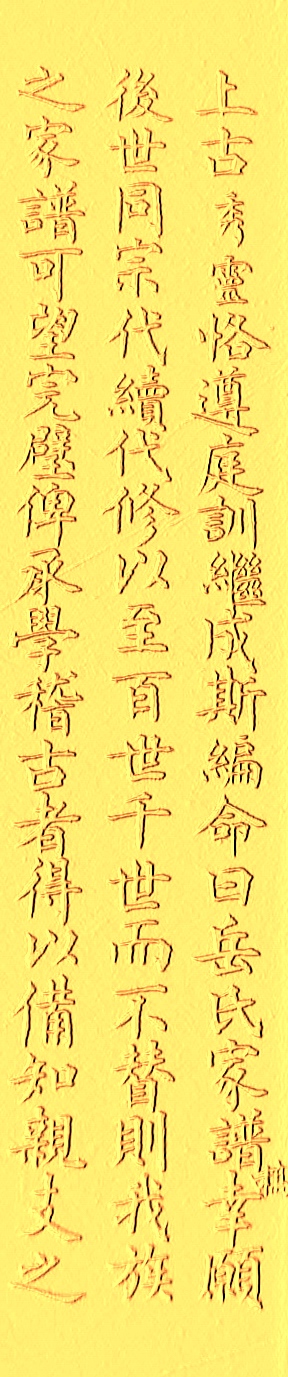 上古秀靈恪遵庭訓繼成斯編命曰岳氏家譜幸願
後世同宗代續代修以至百世千世而不替則我族
之家譜可望完璧俾承學稽古者得以備知親支之